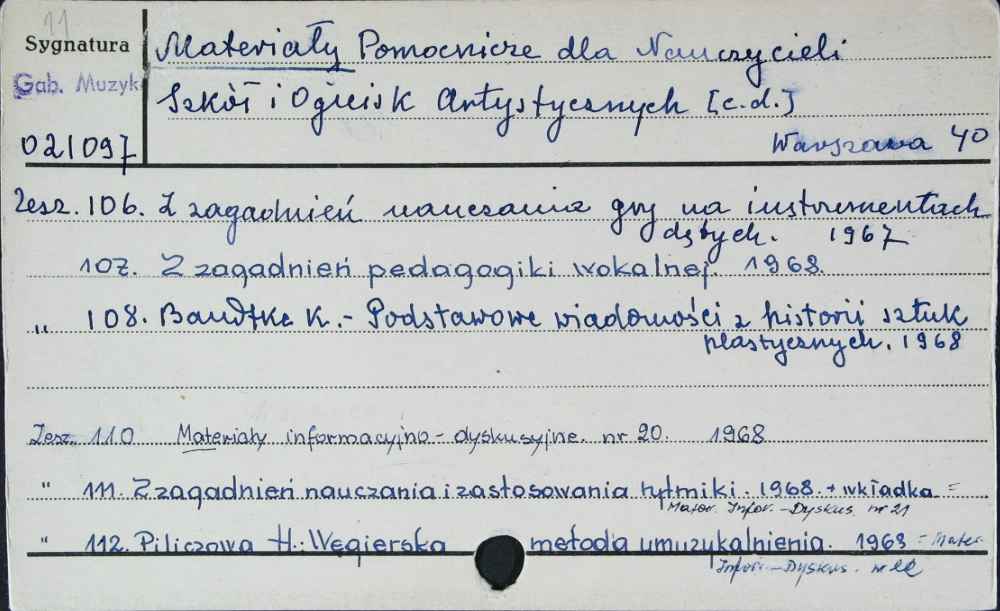 11
Sygnatura
Gab. Muzyk
02/097
Materiały Pomocnicze dla Nauczycieli
Szkół i Ognisk Artystycznych [c.d.]
Warszawa 40
Zesz. 106. Z zagadnień nauczania gry na instrumentach
dętych. 1967
107. Z zagadnień pedagogiki wokalnej. 1968.
" 108. Bandtke K. - Podstawowe wiadomości z historii sztuk
plastycznych. 1968
Zesz. 110 Materiały informacyjno - dyskusyjne. nr 20. 1968
" 111. Z zagadnień nauczania i zastosowania rytmiki. 1968. + wkładka =
Mater. Infor. - Dyskus. nr 21
" 112. Piliczowa H.: Węgierska metoda umuzykalnienia. 1968 = Mater.
Infor. - Dyskus. nr 22